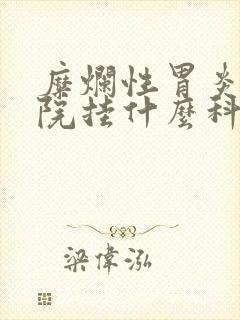 糜爛性胃炎
院挂什麼科
梁偉泓